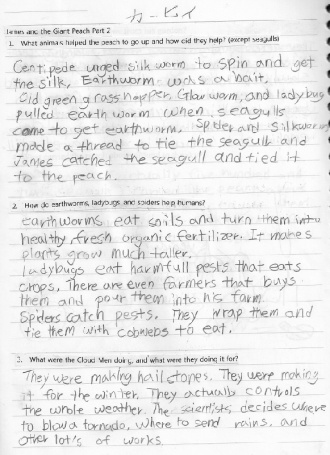 カービィ
James and the Giant Peach Part 2
1. What animals helped the peach to go up and how did they help? (except seagulls)
Centipede urged silk worm to spin and get
the silk. Earthworm was a bait.
Old green grasshopper, Glow worm, and ladybug
pulled earth worm when seagulls
come to get earthworm. Spider and Silkworm
made a thread to tie the seagull and
James catched the seagull and tied it
to the peach.
2. How do earthworms, ladybugs, and spiders help humans?
earthworms eat soils and turn them into
healthy fresh organic fertilizer. It makes
plants grow much taller.
Ladybugs eat harmfull pests that eats
crops. There are even farmers that buys
them and pour them into his farm.
Spiders catch pests. They wrap them and
tie them with cobwebs to eat.
3. What were the Cloud Men doing, and what were they doing it for?
They were making hailstones. They were making
it for the winter. They actually controls
the whole weather. The scientists decides where
to blow a tornado, where to send rains, and
other lot's of works.